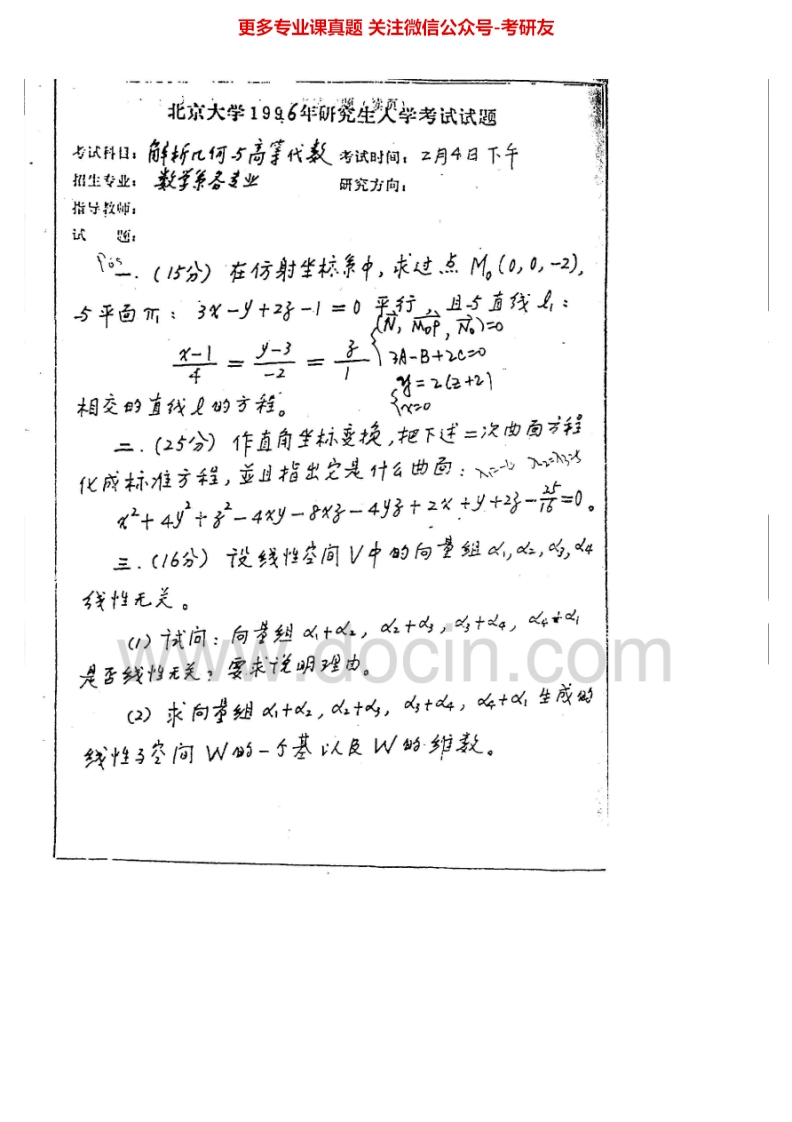 更多专业课真题 关注微信公众号-考研友
北京大学1996年研究生入学考试试题
考试科目: 解析几何与高等代数 考试时间: 2月4日下午
招生专业: 数学系各专业 研究方向:
指导教师:
试 题:
一.(15分) 在仿射坐标系中,求过点 M₀(0,0,-2),
与平面 π₁: 3x-y+2z-1=0 平行,且与直线 l₁:
(N, M₀P, N₀)=0
(x-1)/4 = (y-3)/(-2) = z/1
3A-B+2C=0
y=2(z+2)
x=0
相交的直线 l 的方程。
二.(25分) 作直角坐标变换,把下述二次曲面方程
化成标准方程,並且指出它是什么曲面:
x²+4y²+z²-4xy-8xz-4yz+2x+y+2z-25/16=0。
三.(16分) 设线性空间V中的向量组 α₁,α₂,α₃,α₄
线性无关。
(1) 试问: 向量组 α₁+α₂, α₂+α₃, α₃+α₄, α₄+α₁
是否线性无关?要求说明理由。
(2) 求向量组 α₁+α₂, α₂+α₃, α₃+α₄, α₄+α₁ 生成的
线性子空间 W 的一个基以及 W 的维数。
www.docin.com